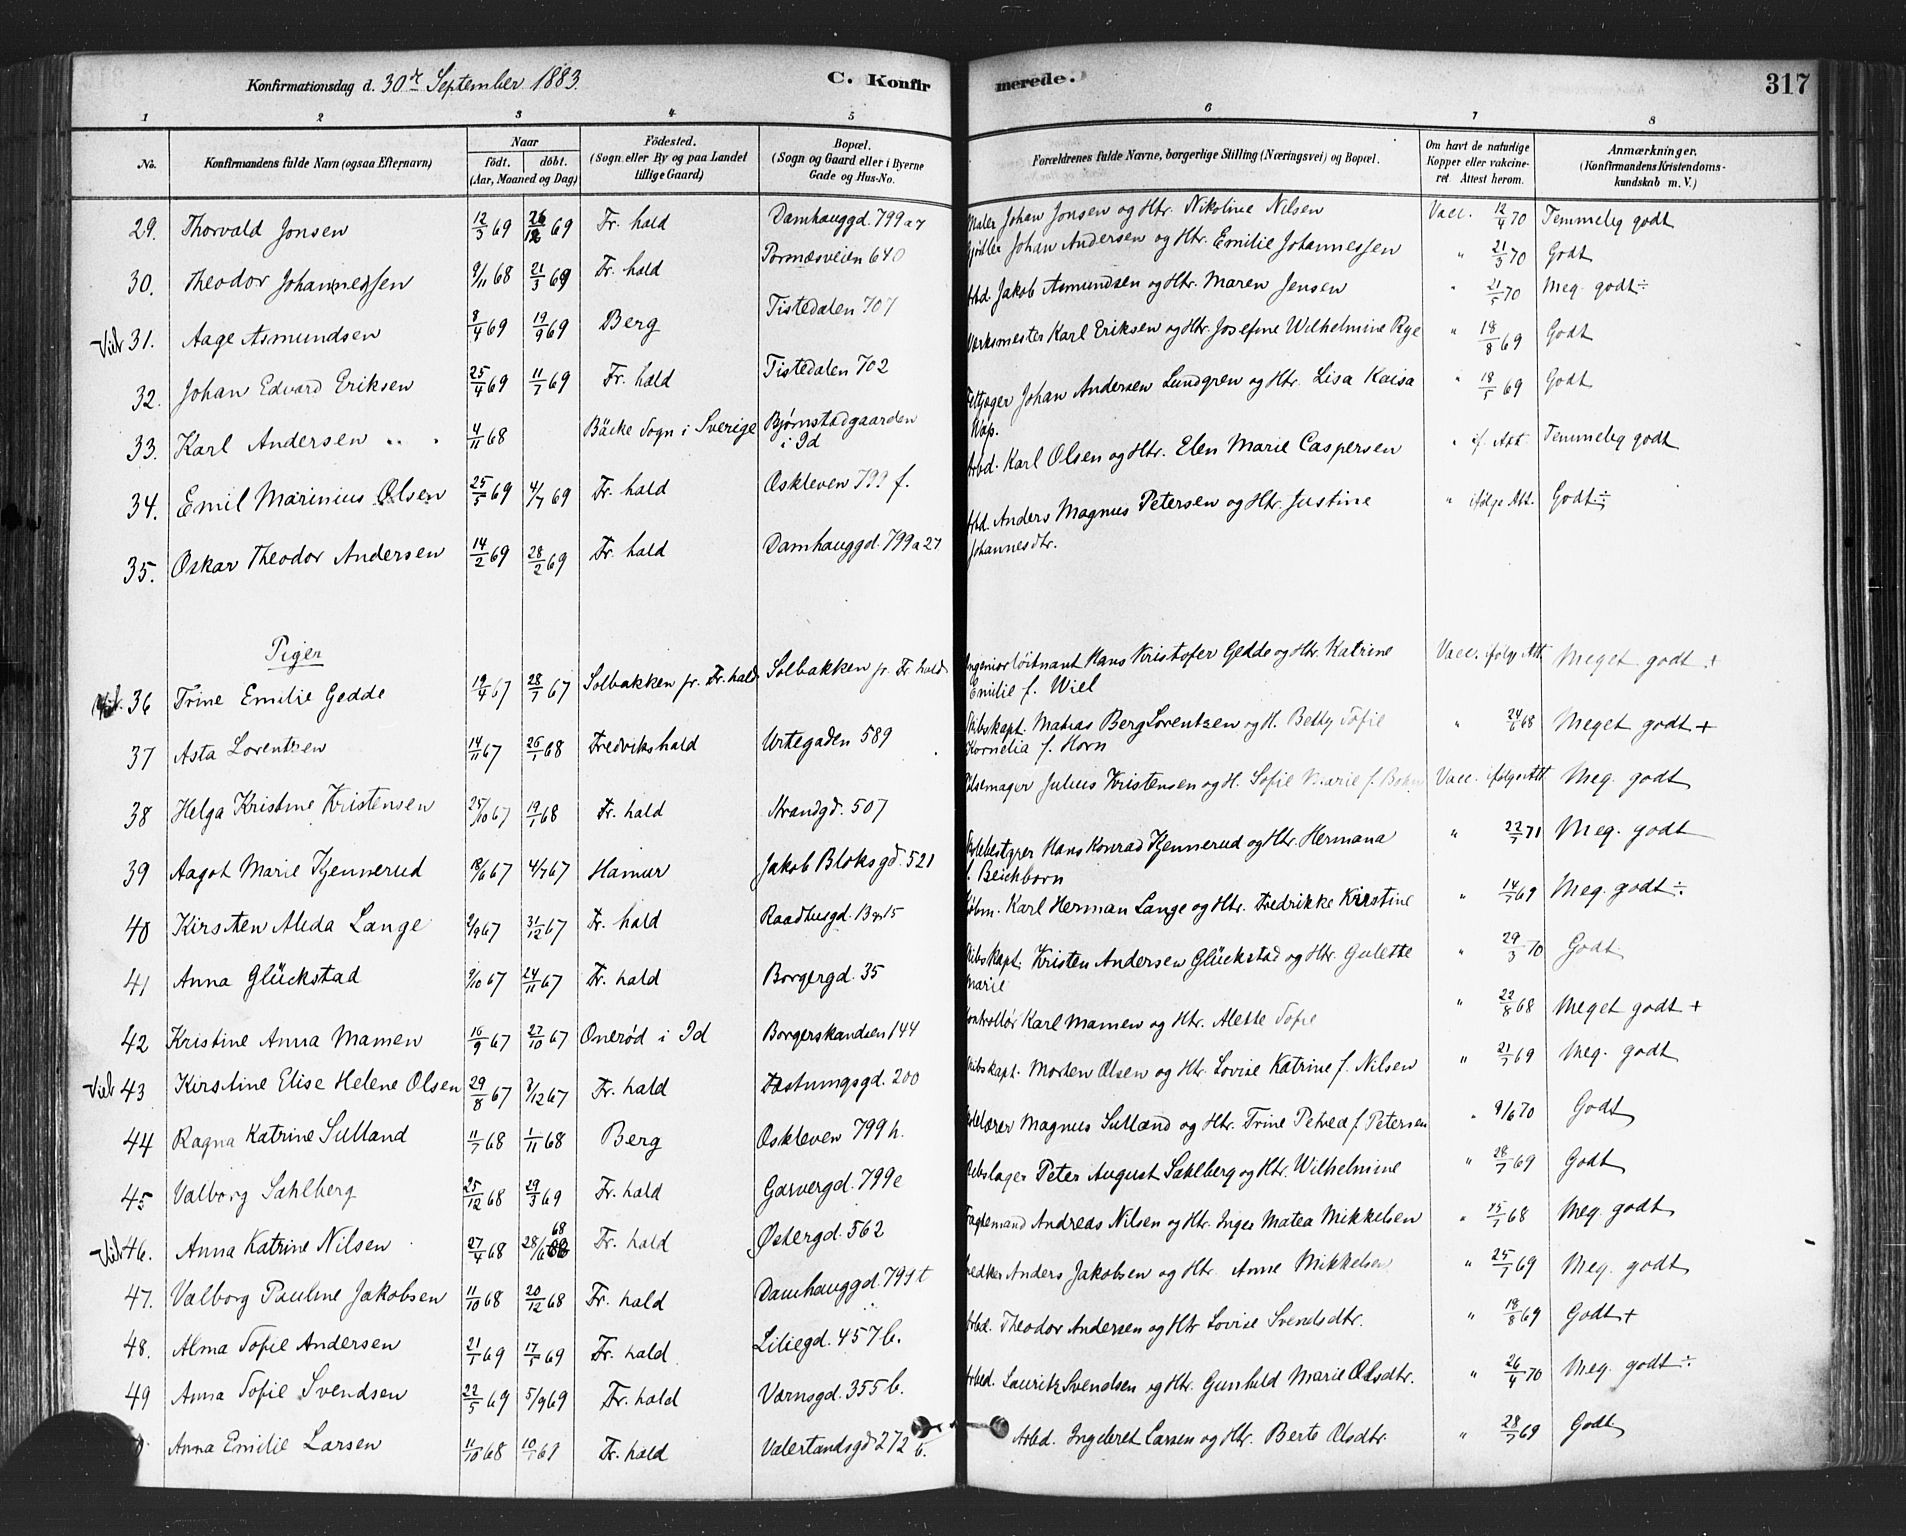 Konfirmationsdag d. 30te September 1883. C. Konfirmerede. 317
1 2 3 4 5 6 7 8
No. Konfirmandens fulde Navn (ogsaa Efternavn) Naar födt. döbt. (Aar, Maaned og Dag) Födested. (Sogn eller By og paa Landet tillige Gaard) Bopæl. (Sogn og Gaard eller i Byerne Gade og Hus-No. Forældrenes fulde Navne, borgerlige Stilling (Næringsvei) og Bopæl. Om havt de naturlige Kopper eller vakcineret. Attest herom. Anmærkninger. (Konfirmandens Kristendomskundskab m. V.)
29. Thorvald Jonsen 12/3 69 26/12 69 Fr. hald Damhauggd. 799 a 7 Maler Johan Jonsen og Htr. Nikoline Nilsen Vacc. 12/4 70 Temmelig godt
30. Theodor Johannessen 9/11 68 21/3 69 Fr. hald 640 Johan Andersen og Htr. Emilie Johannessen " 21/3 70 Godt
31. Aage Asmundsen 8/4 69 19/9 69 Berg Tistedalen 707 Arbd. Jakob Asmundsen og Htr. Maren Jensen " 21/5 70 Meg. godt ÷
32. Johan Edvard Eriksen 25/4 69 11/7 69 Fr. hald Tistedalen 702 Værksmester Karl Eriksen og Htr. Josefine Wilhelmine Rye " 18/8 69 Godt
33. Karl Andersen 4/11 68 Bäcke Sogn i Sverige Bjørnstadgaarden i Id Johan Andersen Lundgren og Htr. Lisa Kaisa " 18/5 69 Godt
34. Emil Marinius Olsen 25/5 69 4/7 69 Fr. hald Oskleven 799 f. Arbd. Karl Olsen og Htr. Elen Marie Caspersen " if. Att. Temmelig godt
35. Oskar Theodor Andersen 14/2 69 28/2 69 Fr. hald Damhauggd. 799 a 27 Arbd. Anders Magnus Petersen og Htr. Justine Johannesdtr. " ifølge Att. Godt ÷
Piger
36 Trine Emilie Gedde 19/4 67 28/7 67 Solbakken pr. Fr. hald Solbakken pr. Fr. hald Ingeniørløitnant Hans Kristofer Gedde og Htr. Katrine Emilie f. Wiel Vacc. ifølg. Att. Meget godt +
37 Asta Lorentzen 14/11 67 26/1 68 Fredrikshald Urtegaden 589 Skibskapt. Matias Berg Lorentzen og H. Betty Sofie Kornelia f. Horn " 24/6 68 Meget godt +
38 Helga Kristine Kristensen 25/10 67 19/1 68 Fr. hald Strandgd. 507 Julius Kristensen og H. Sofie Marie f. Vacc. ifølge Att. Meg. godt
39 Aagot Marie Kjennerud 18/6 67 4/7 67 Hamar Jakob Bloksgd. 521 Hans Konrad Kjennerud og Htr. Hermana f. Beichborn " 22/7 71 Meg. godt
40 Kirsten Aleda Lange 2/9 67 31/12 67 Fr. hald Raadhusgd. 15 Kjøbm. Karl Herman Lange og Htr. Fredrikke Kirstine " 14/7 69 Meg. godt ÷
41 Anna Glückstad 9/10 67 24/11 67 Fr. hald Borgergd. 35 Skibskapt. Kristen Andersen Glückstad og Htr. Gulette Marie " 29/3 70 Godt
42 Kristine Anna Mamen 16/9 67 27/10 67 Onerød i Id Borgerskandsen 144 Kontrollør Karl Mamen og Htr. Alette Sofie " 22/8 68 Meget godt +
43 Kirstine Elise Helene Olsen 29/8 67 8/12 67 Fr. hald Fæstningsgd. 200 Skibskapt. Morten Olsen og Htr. Lovise Katrine f. Nilsen " 21/7 69 Meg. godt
44 Ragna Katrine Sulland 11/7 68 1/11 68 Berg Oskleven 799 h. Magnus Sulland og Htr. Trine Petrea f. Petersen " 9/6 70 Godt
45 Valborg Sahlberg 25/12 68 29/3 69 Fr. hald Garvergd. 799 e Peter August Sahlberg og Htr. Wilhelmine " 28/7 69 Godt
46. Anna Katrine Nilsen 27/4 68 28/6 68 Fr. hald Østergd. 562 Andreas Nilsen og Htr. Inger Matea Mikkelsen " 15/7 68 Meg. godt
47. Valborg Pauline Jakobsen 11/10 68 20/12 68 Fr. hald Damhauggd. 799 t Anders Jakobsen og Htr. Anne Mikkelsen " 25/7 69 Meg. godt
48. Alma Sofie Andersen 21/1 69 17/5 69 Fr. hald Liliegd. 457 b. Arbd. Theodor Andersen og Htr Lovise Svendsdtr. " 18/8 69 Godt +
49 Anna Sofie Svendsen 22/5 69 5/9 69 Fr. hald Værnsgd. 355 b. Arbd. Laurik Svendsen og Htr. Gunhild Marie Olsdtr. " 26/4 70 Meg. godt ÷
Anna Emilie Larsen 11/10 68 10/1 69 Fr. hald 272 b. Arbd. Ingebret Larsen og Htr. Berte Olsdtr. " 28/7 69 Godt